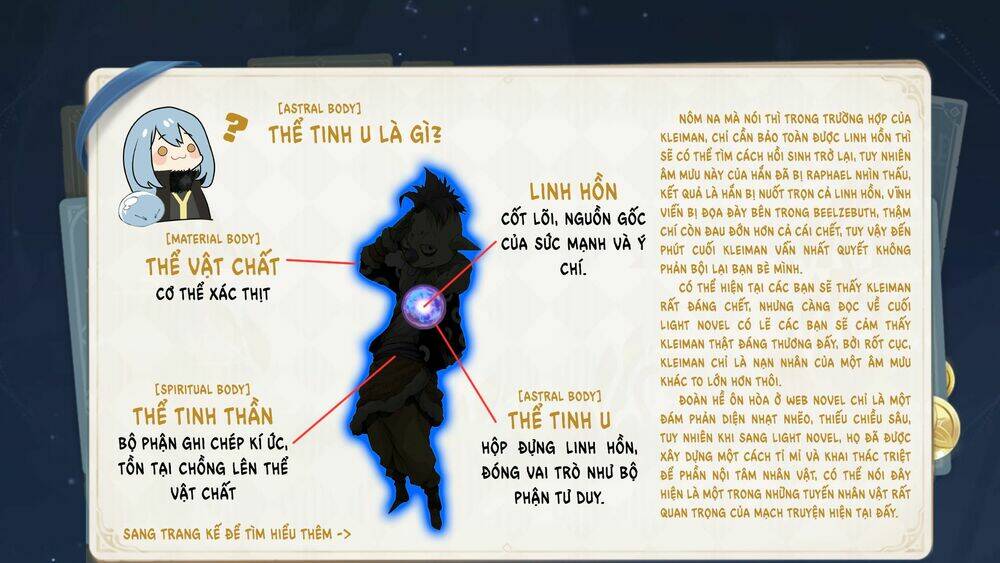 [ASTRAL BODY]
THỂ TINH U LÀ GÌ?
?
[MATERIAL BODY]
THỂ VẬT CHẤT
CƠ THỂ XÁC THỊT
LINH HỒN
CỐT LÕI, NGUỒN GỐC
CỦA SỨC MẠNH VÀ Ý
CHÍ.
[SPIRITUAL BODY]
THỂ TINH THẦN
BỘ PHẬN GHI CHÉP KÍ ỨC,
TỒN TẠI CHỒNG LÊN THỂ
VẬT CHẤT
[ASTRAL BODY]
THỂ TINH U
HỘP ĐỰNG LINH HỒN,
ĐÓNG VAI TRÒ NHƯ BỘ
PHẬN TƯ DUY.
SANG TRANG KẾ ĐỂ TÌM HIỂU THÊM ->
NÔM NA MÀ NÓI THÌ TRONG TRƯỜNG HỢP CỦA
KLEIMAN, CHỈ CẦN BẢO TOÀN ĐƯỢC LINH HỒN THÌ
SẼ CÓ THỂ TÌM CÁCH HỒI SINH TRỞ LẠI, TUY NHIÊN
ÂM MƯU NÀY CỦA HẮN ĐÃ BỊ RAPHAEL NHÌN THẤU,
KẾT QUẢ LÀ HẮN BỊ NUỐT TRỌN CẢ LINH HỒN, VĨNH
VIỄN BỊ ĐỌA ĐÀY BÊN TRONG BEELZEBUTH, THẬM
CHÍ CÒN ĐAU ĐỚN HƠN CẢ CÁI CHẾT, TUY VẬY ĐẾN
PHÚT CUỐI KLEIMAN VẪN NHẤT QUYẾT KHÔNG
PHẢN BỘI LẠI BẠN BÈ MÌNH.
CÓ THỂ HIỆN TẠI CÁC BẠN SẼ THẤY KLEIMAN
RẤT ĐÁNG CHẾT, NHƯNG CÀNG ĐỌC VỀ CUỐI
LIGHT NOVEL CÓ LẼ CÁC BẠN SẼ CẢM THẤY
KLEIMAN THẬT ĐÁNG THƯƠNG ĐẤY, BỞI RỐT CỤC,
KLEIMAN CHỈ LÀ NẠN NHÂN CỦA MỘT ÂM MƯU
KHÁC TO LỚN HƠN THÔI.
ĐOÀN HỀ ÔN HÒA Ở WEB NOVEL CHỈ LÀ MỘT
ĐÁM PHẢN DIỆN NHẠT NHẼO, THIẾU CHIỀU SÂU,
TUY NHIÊN KHI SANG LIGHT NOVEL, HỌ ĐÃ ĐƯỢC
XÂY DỰNG MỘT CÁCH TỈ MỈ VÀ KHAI THÁC TRIỆT
ĐỂ PHẦN NỘI TÂM NHÂN VẬT, CÓ THỂ NÓI ĐÂY
HIỆN LÀ MỘT TRONG NHỮNG TUYẾN NHÂN VẬT RẤT
QUAN TRỌNG CỦA MẠCH TRUYỆN HIỆN TẠI ĐẤY.